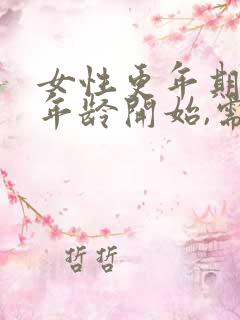 女性更年期
年龄开始,需
哲哲